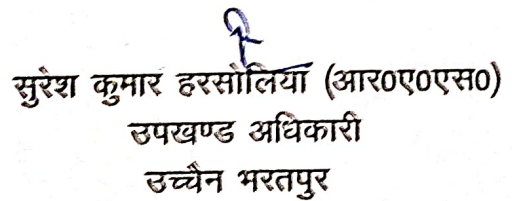 सुरेश कुमार हरसोलिया (आर०ए०एस०)
उपखण्ड अधिकारी
उच्चैन भरतपुर